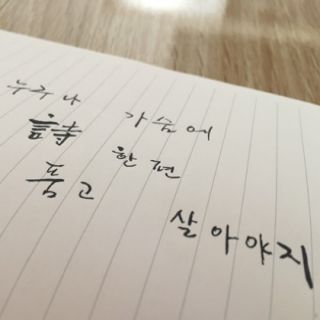 누구나 가슴에
詩 한 편
품고 살아야지